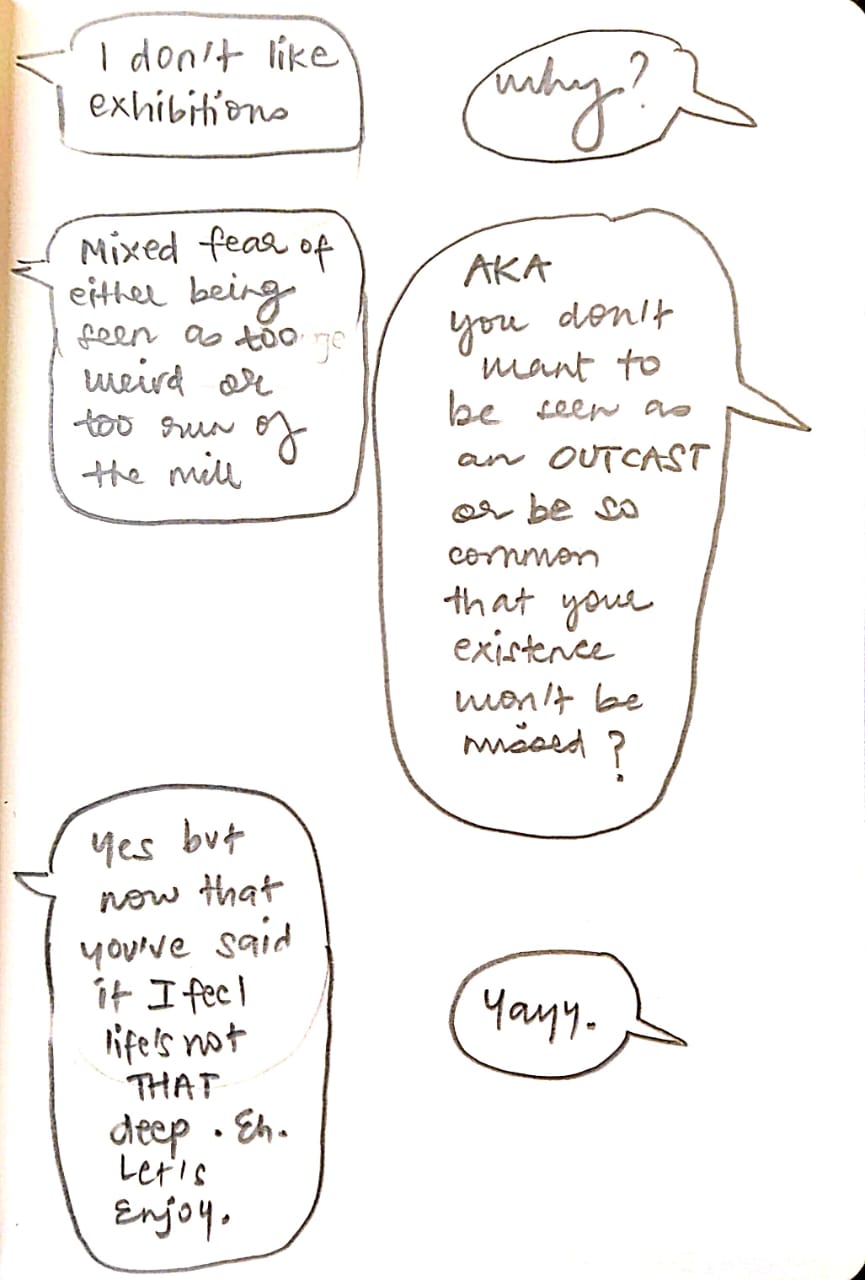 I don't like
exhibitions
why?
Mixed fear of
either being
seen as too
weird or
too run of
the mill
AKA
you don't
want to
be seen as
an OUTCAST
or be so
common
that your
existence
won't be
missed?
Yes but
now that
you've said
it I feel
life's not
THAT
deep. Eh.
Let's
Enjoy.
Yayy.